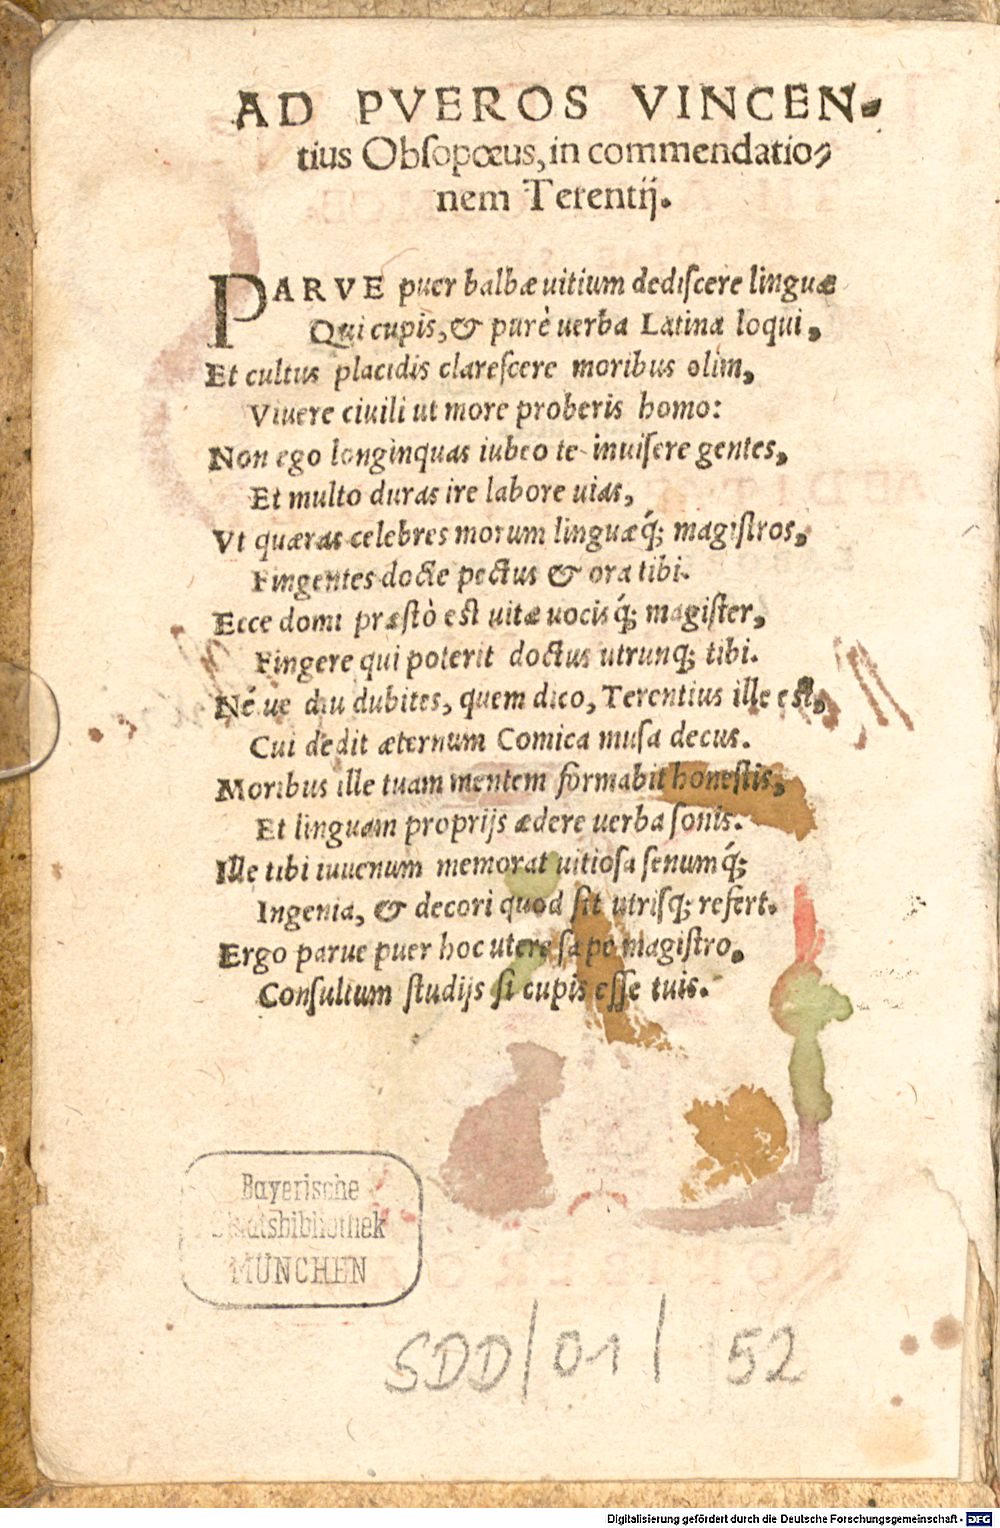 AD PVEROS VINCEN-
tius Obsopœus, in commendatio-
nem Terentij.
PARVE puer balbæ uitium dediscere linguæ
Qui cupis, & purè uerba Latina loqui,
Et cultus placidis clarescere moribus olim,
Viuere ciuili ut more proberis homo:
Non ego longinquas iubeo te inuisere gentes,
Et multo duras ire labore uias,
Vt quæras celebres morum linguæq́; magistros,
Fingentes docte pectus & ora tibi.
Ecce domi præstò est uitæ uocisq́; magister,
Fingere qui poterit doctus utrunq; tibi.
Né ue diu dubites, quem dico, Terentius ille est,
Cui dedit æternum Comica musa decus.
Moribus ille tuam mentem formabit honestis,
Et linguam proprijs ædere uerba sonis.
Ille tibi iuuenum memorat uitiosa senumq́;
Ingenia, & decori quod sit utrisq; refert.
Ergo parue puer hoc utere sæpe magistro,
Consultum studijs si cupis esse tuis.
Bayerische
Staatsbibliothek
MÜNCHEN
SDD/01/52
Digitalisierung gefördert durch die Deutsche Forschungsgemeinschaft - DFG